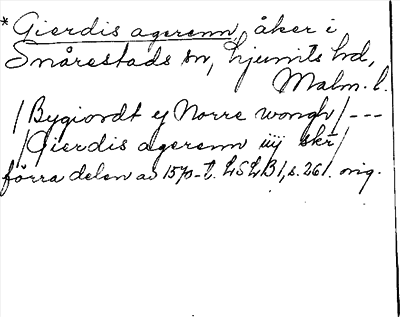 * Gierdis agerenn, åker i
Snårestads sn, Ljunits hd,
Malm. l.
/Bygiordt ej Norre wongh/ ---
/Gierdis agerenn iiij skr/
förra delen av 1570-t. LSLB1, s. 261. orig.